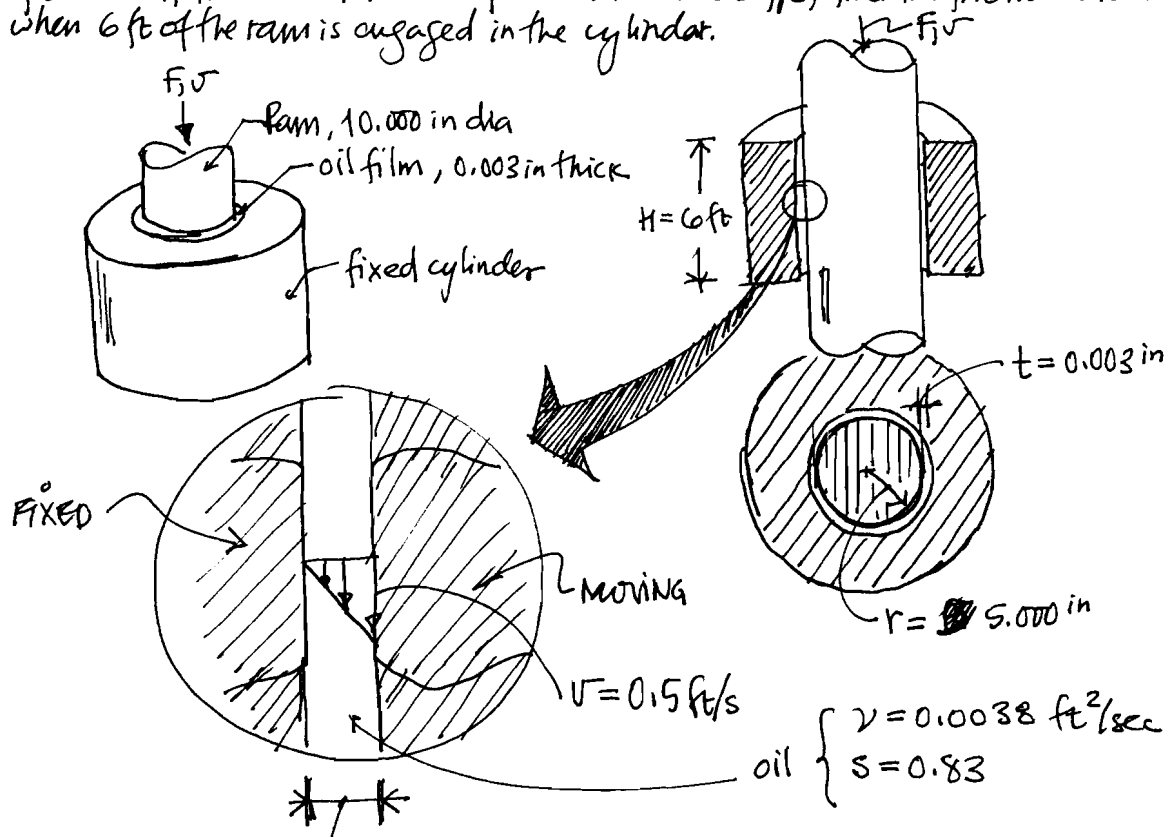 when 6 ft of the ram is engaged in the cylinder.
F, v
F, v
Ram, 10.000 in dia
oil film, 0.003 in thick
H = 6 ft
fixed cylinder
t = 0.003 in
FIXED
MOVING
r = 5.000 in
v = 0.5 ft/s
oil { ν = 0.0038 ft²/sec
s = 0.83